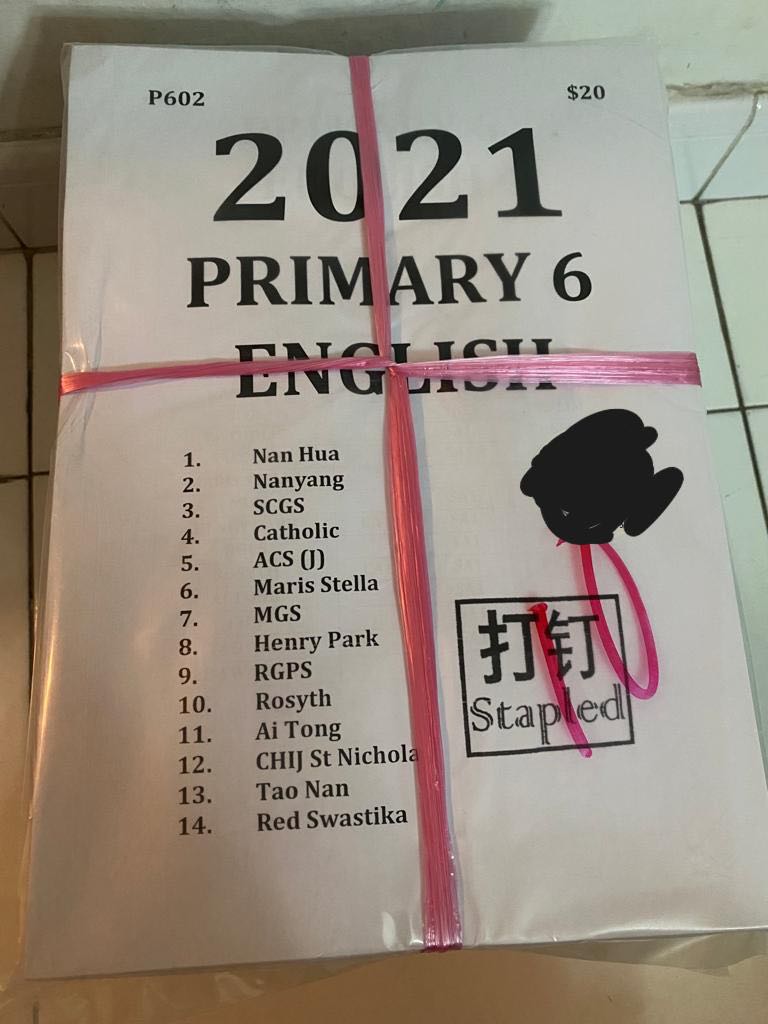 P602 $20
2021
PRIMARY 6
ENGLISH
1. Nan Hua
2. Nanyang
3. SCGS
4. Catholic
5. ACS (J)
6. Maris Stella
7. MGS
8. Henry Park
9. RGPS
10. Rosyth
11. Ai Tong
12. CHIJ St Nichola
13. Tao Nan
14. Red Swastika
打钉
Stapled